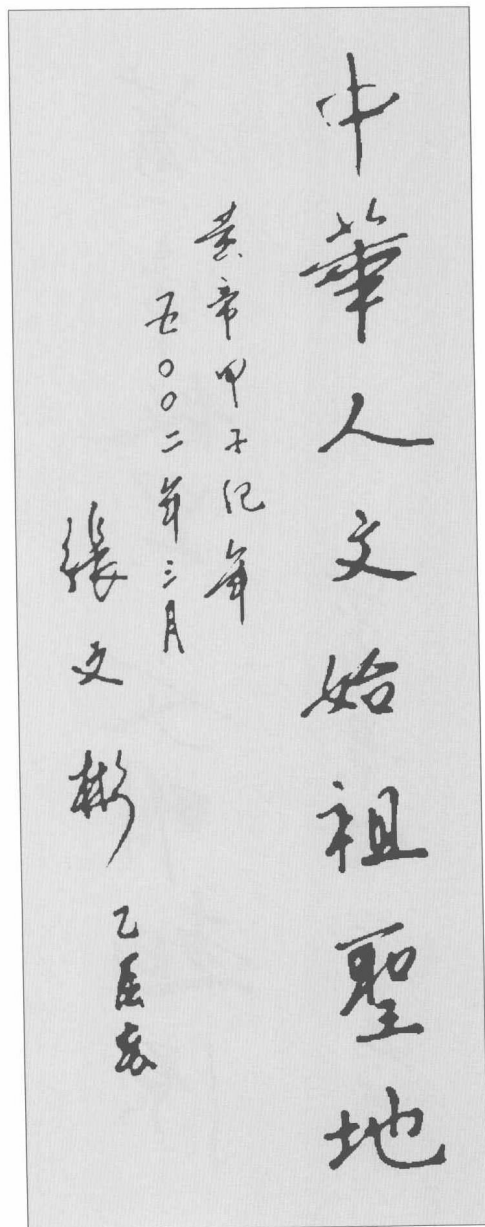 中華人文始祖聖地
黄帝甲子纪年
五〇〇二年三月
張文彬 乙酉春